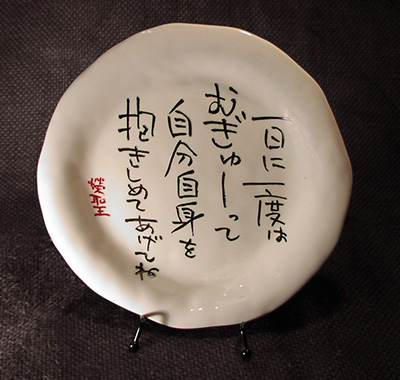 一日に一度は
むぎゅーって
自分自身を
抱きしめてあげてね